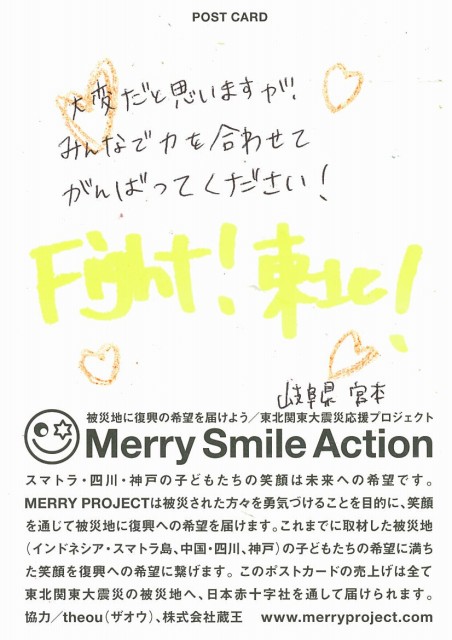 POST CARD
大変だと思いますが、
みんなで力を合わせて
がんばってください！
Fight！東北！
岐阜県 宮本
被災地に復興の希望を届けよう／東北関東大震災応援プロジェクト
Merry Smile Action
スマトラ・四川・神戸の子どもたちの笑顔は未来への希望です。
MERRY PROJECTは被災された方々を勇気づけることを目的に、笑顔
を通じて被災地に復興への希望を届けます。これまでに取材した被災地
（インドネシア・スマトラ島、中国・四川、神戸）の子どもたちの希望に満ち
た笑顔を復興への希望に繋げます。このポストカードの売上げは全て
東北関東大震災の被災地へ、日本赤十字社を通して届けられます。
協力／theou（ザオウ）、株式会社蔵王 www.merryproject.com